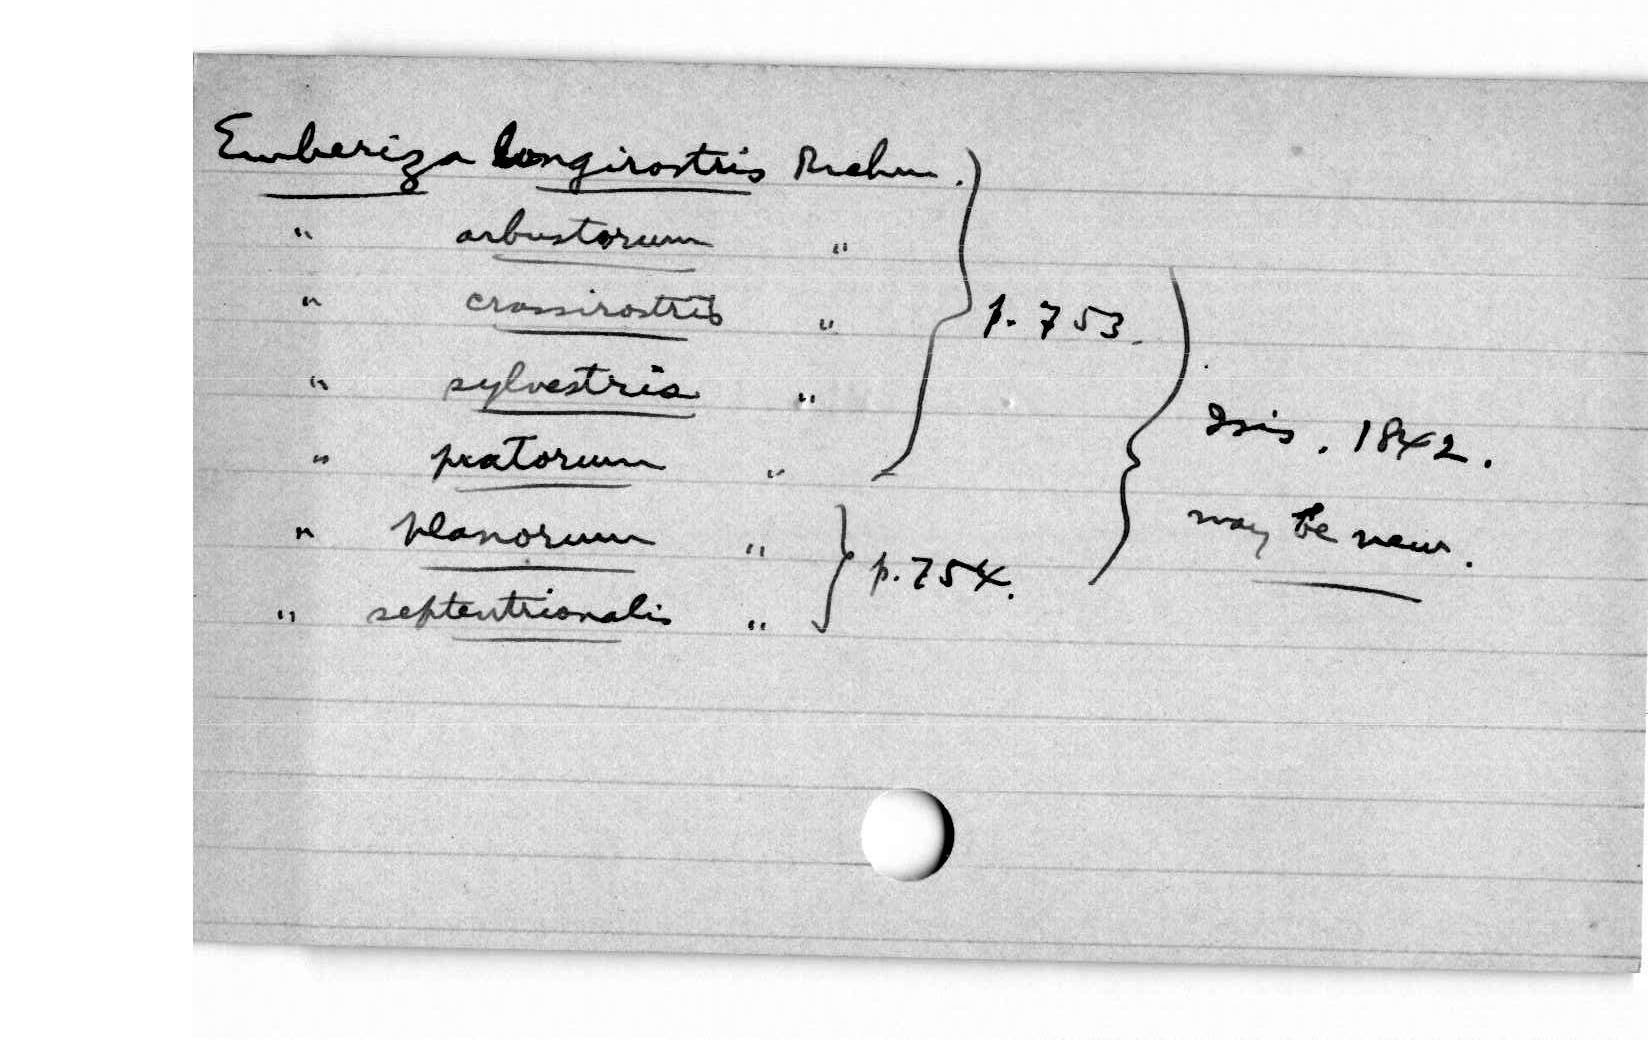 Emberiza longirostris Brehm.
" arbustorum "
" crassirostris "
p. 753.
" sylvestris "
Isis. 1842.
" pratorum "
may be new.
" planorum "
p. 754.
" septentrionalis "